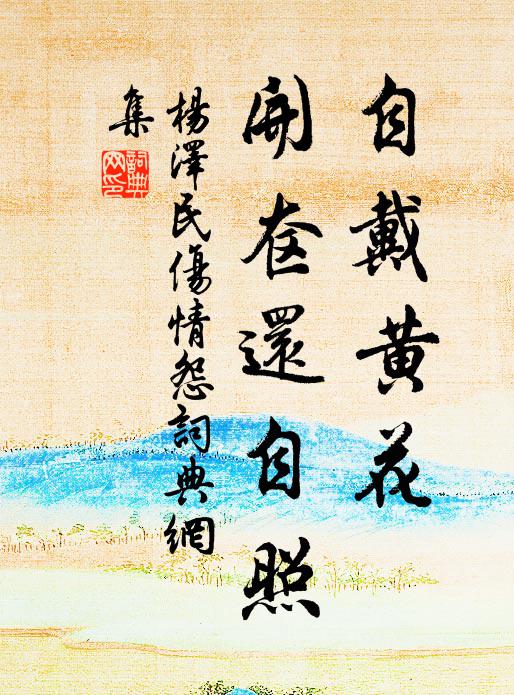 自戴黄花
開奩還自照
楊澤民傷情怨詞典網
集
詞典網印